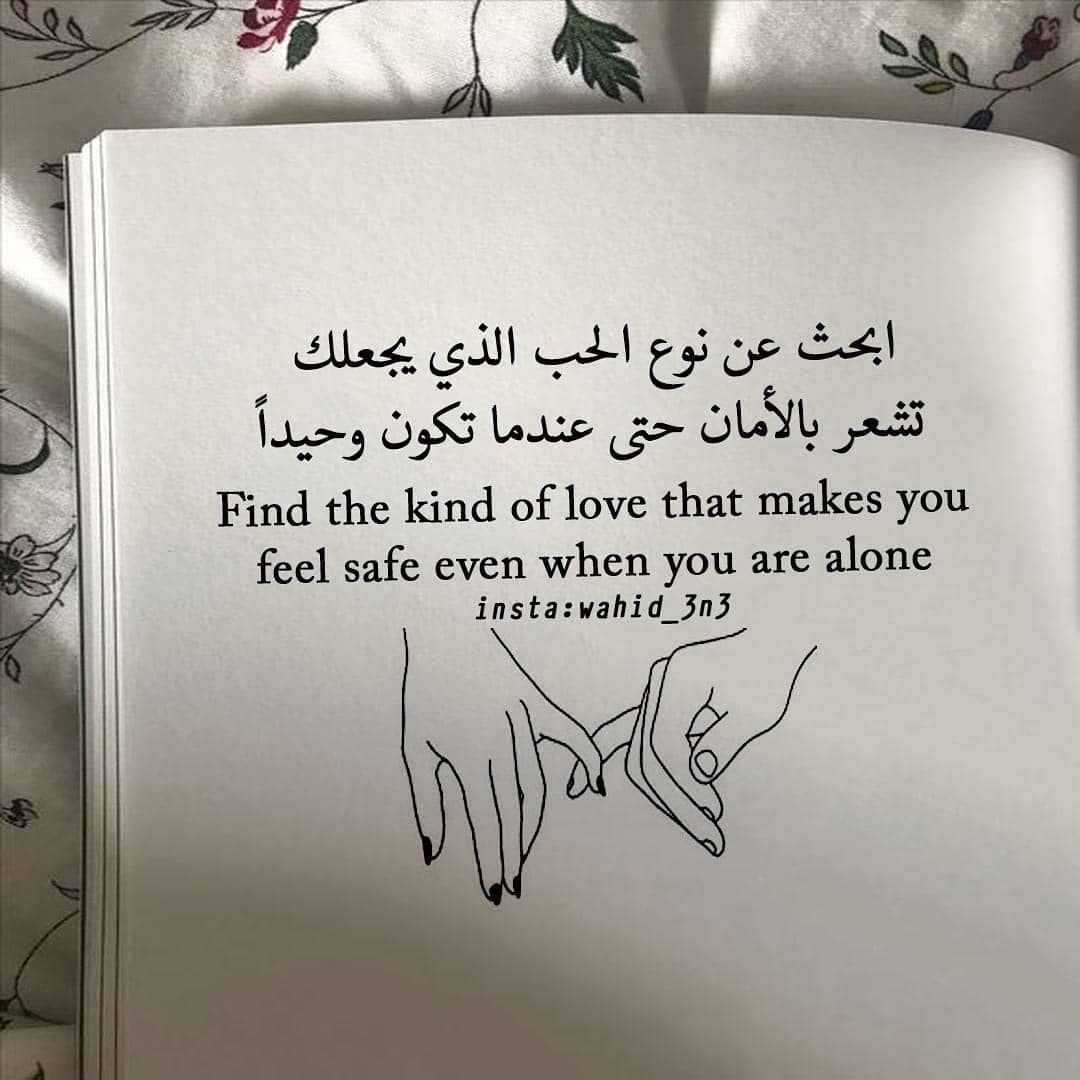 ابحث عن نوع الحب الذي يجعلك
تشعر بالأمان حتى عندما تكون وحيداً
Find the kind of love that makes you
feel safe even when you are alone
insta:wahid_3n3